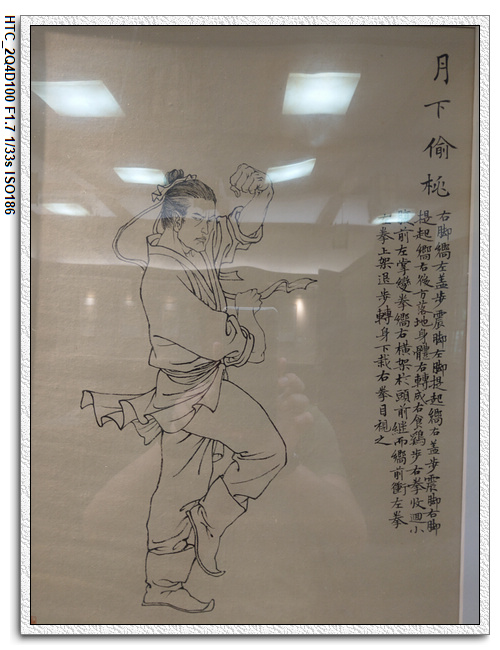 月下偷桃
右脚嚮左蓋步震脚左脚提起嚮右蓋步震脚右脚
提起嚮右後方落地身體右轉成右食鷄步右拳收廻小
前左掌變拳嚮右橫架於頭前継而嚮前衝左拳
左拳上架退步轉身下栽右拳目視之
HTC_2Q4D100 F1.7 1/33s ISO186